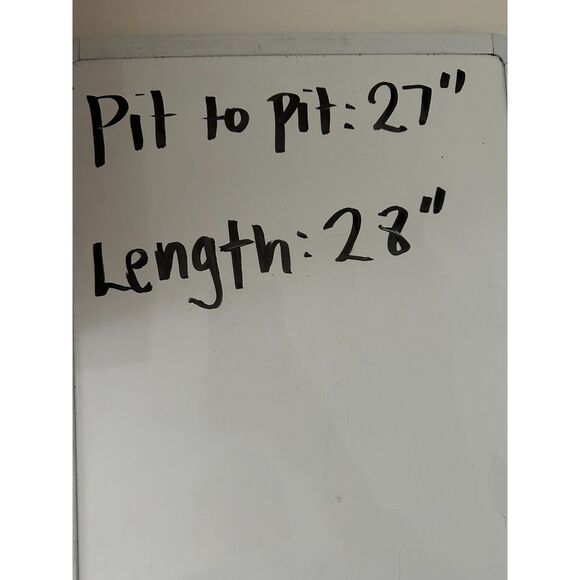 Pit to pit: 27"
Length: 28"